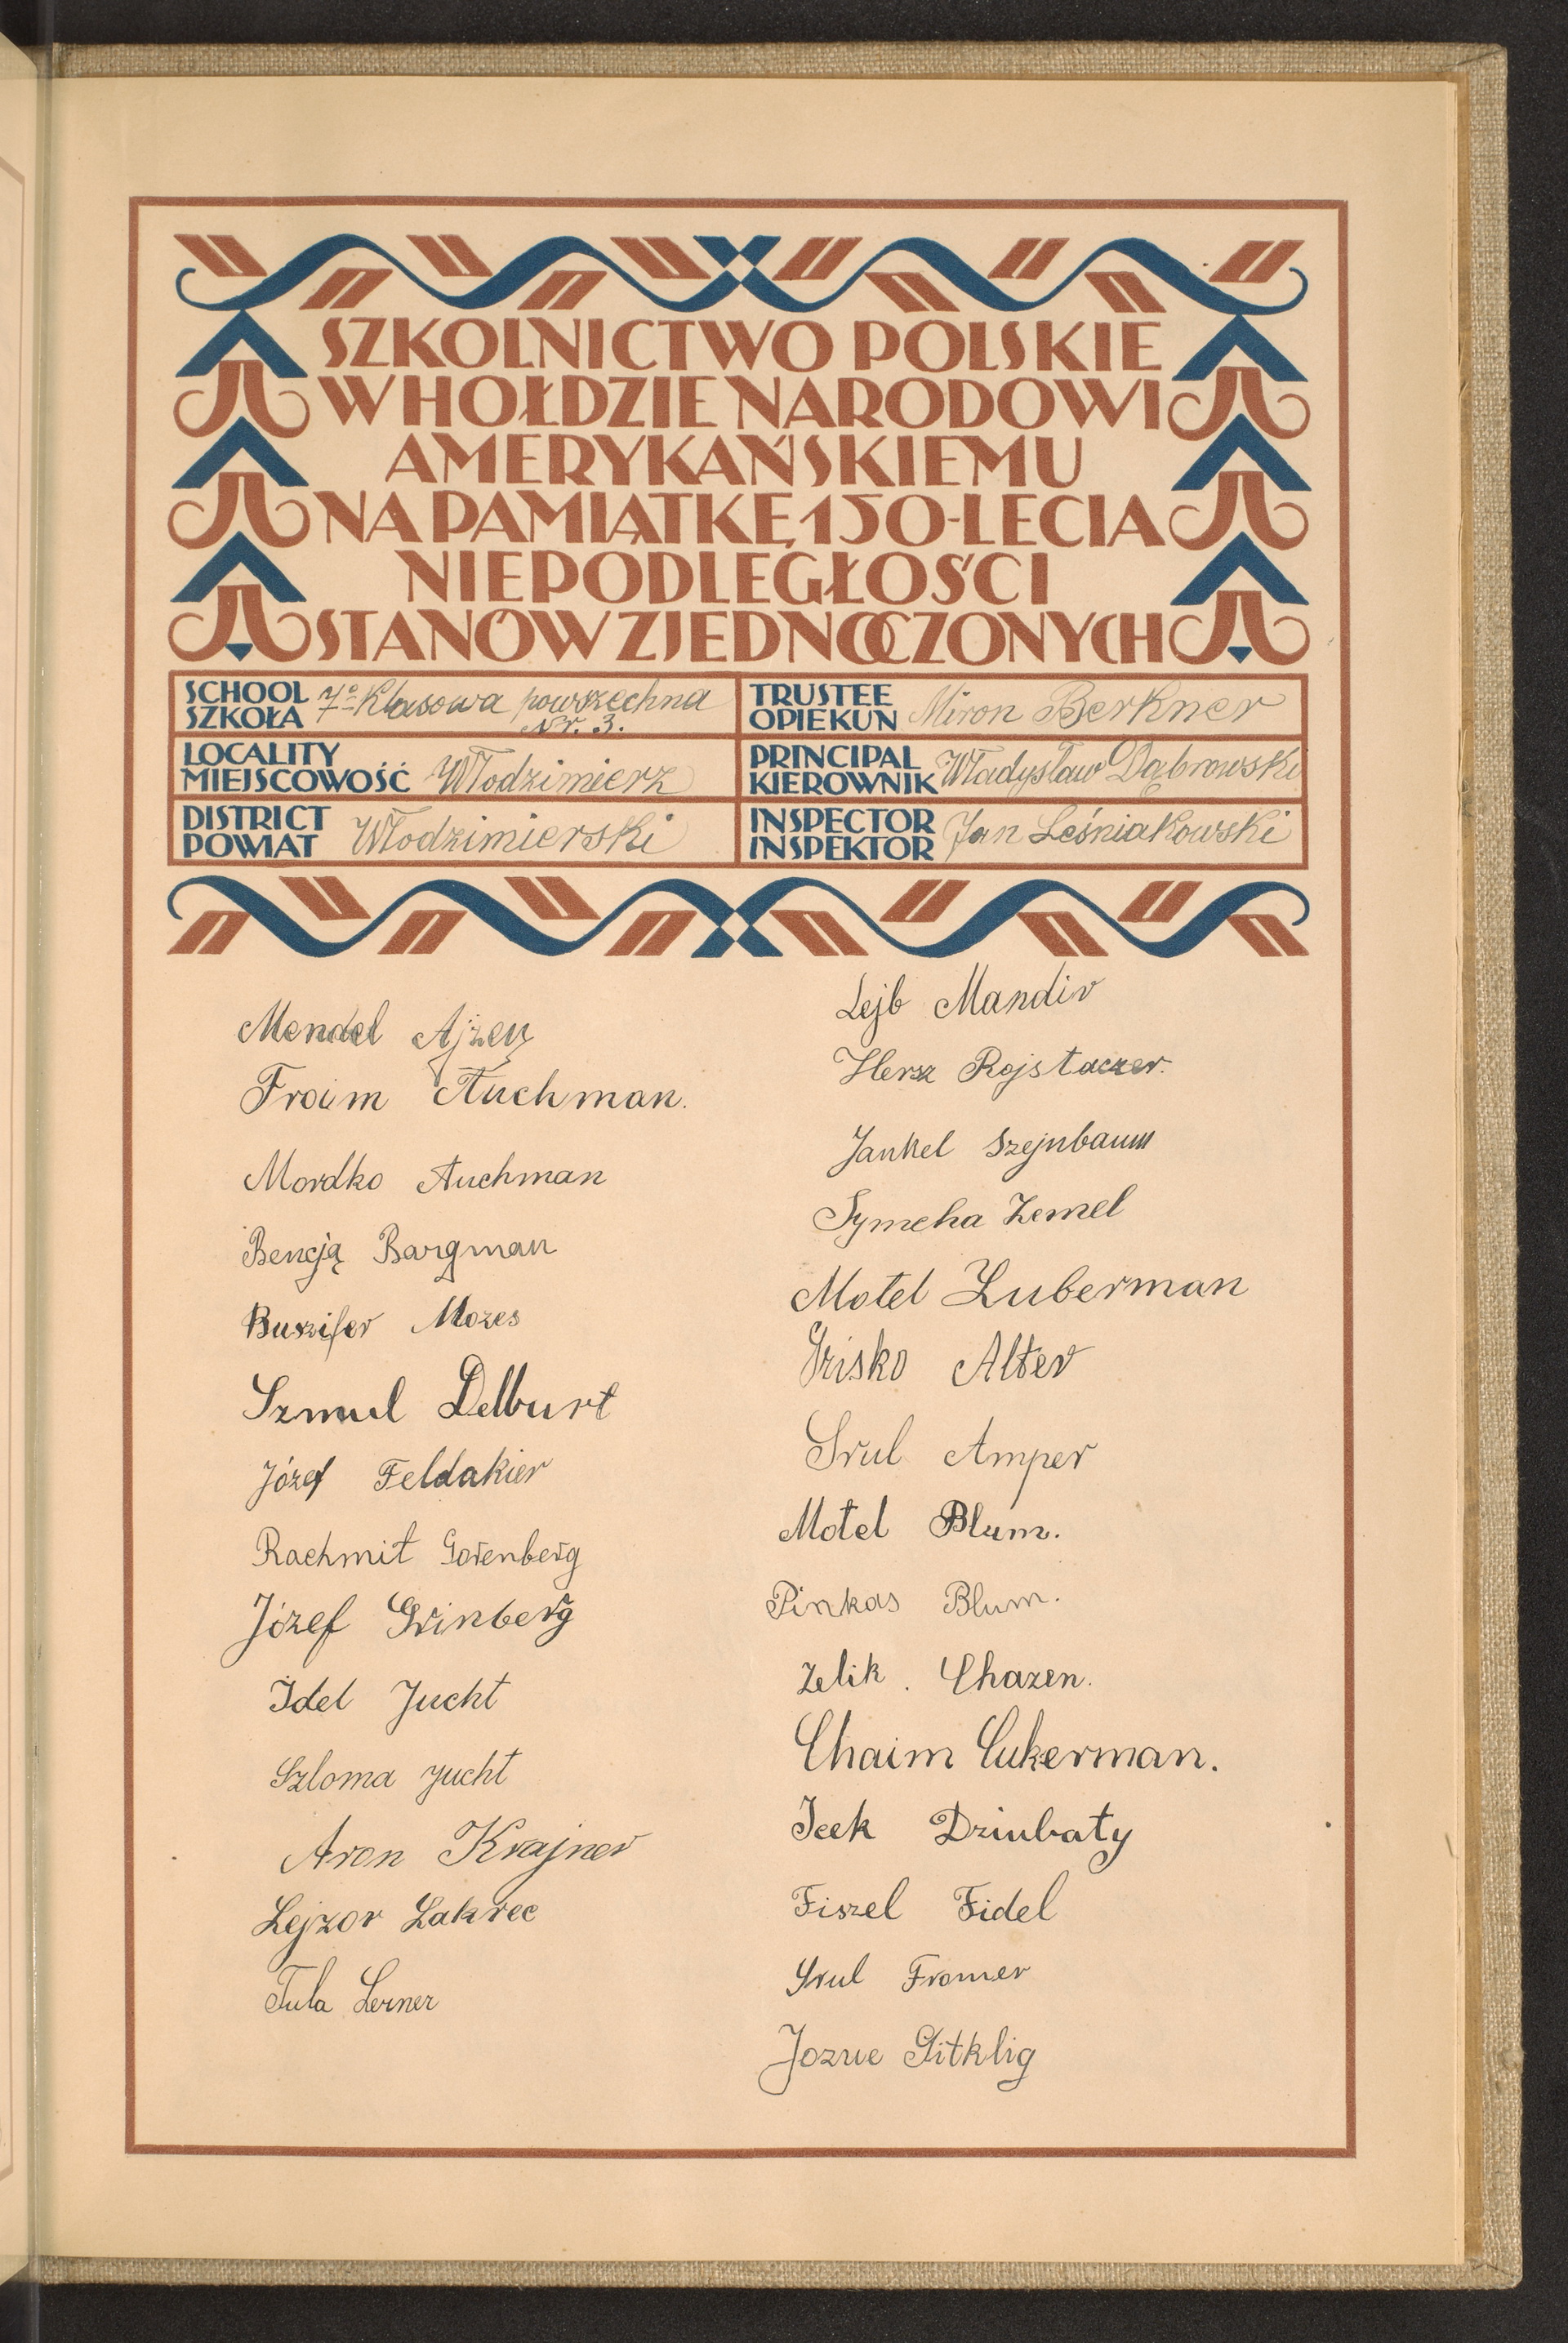 SZKOLNICTWO POLSKIE
W HOŁDZIE NARODOWI
AMERYKAŃSKIEMU
NA PAMIĄTKĘ 150-LECIA
NIEPODLEGŁOŚCI
STANÓW ZJEDNOCZONYCH
SCHOOL
SZKOŁA
7o Klasowa powszechna
Nr. 3.
TRUSTEE
OPIEKUN
Miron Berkner
LOCALITY
MIEJSCOWOŚĆ
Włodzimierz
PRINCIPAL
KIEROWNIK
Władysław Dąbrowski
DISTRICT
POWIAT
Włodzimierski
INSPECTOR
INSPEKTOR
Jan Leśniakowski
Mendel Ajzen
Froim Auchman.
Mordko Auchman
Bencją Bargman
Buszifer Mozes
Szmul Delburt
Józef Feldakier
Rachmit Gorenberg
Józef Grinberg
Idel Jucht
Szloma Jucht
Aron Krajner
Lejzor Lakrec
Tula Lerner
Lejb Mandir
Hersz Rojstaczer.
Jankel Szejnbaum
Symcha Zemel
Motel Luberman
Srisko Alter
Srul Amper
Motel Blum.
Pinkas Blum.
Zelik. Chazen.
Chaim Cukerman.
Icek Dziubaty
Fiszel Fidel
Srul Fromer
Jozue Gitklig